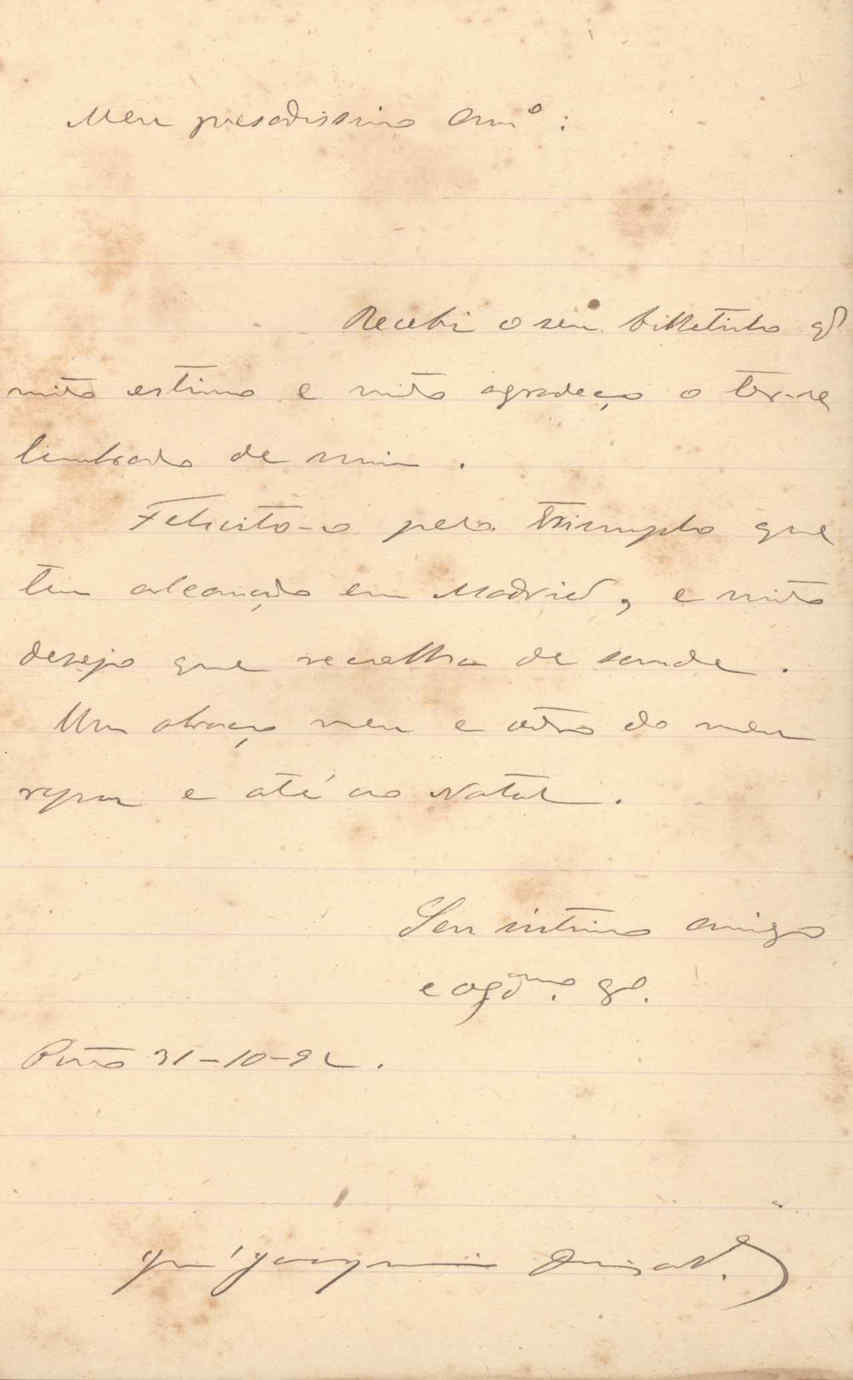 Meu presadissimo Amº:
Recebi o seu bilhetinho qᵉ
muito estimo e muito agradeço o ter-se
lembrado de mim.
Felicito-o pelo triumpho que
tem alcançado em Madrid, e muito
desejo que recolha de saude.
Um abraço meu e outro do meu
rapaz e até ao Natal.
Seu intimo amigo
e
Porto 31-10-92.
José Joaquim